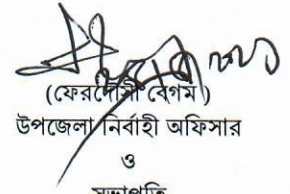 (ফেরদৌসী বেগম)
উপজেলা নির্বাহী অফিসার
ও
সভাপতি